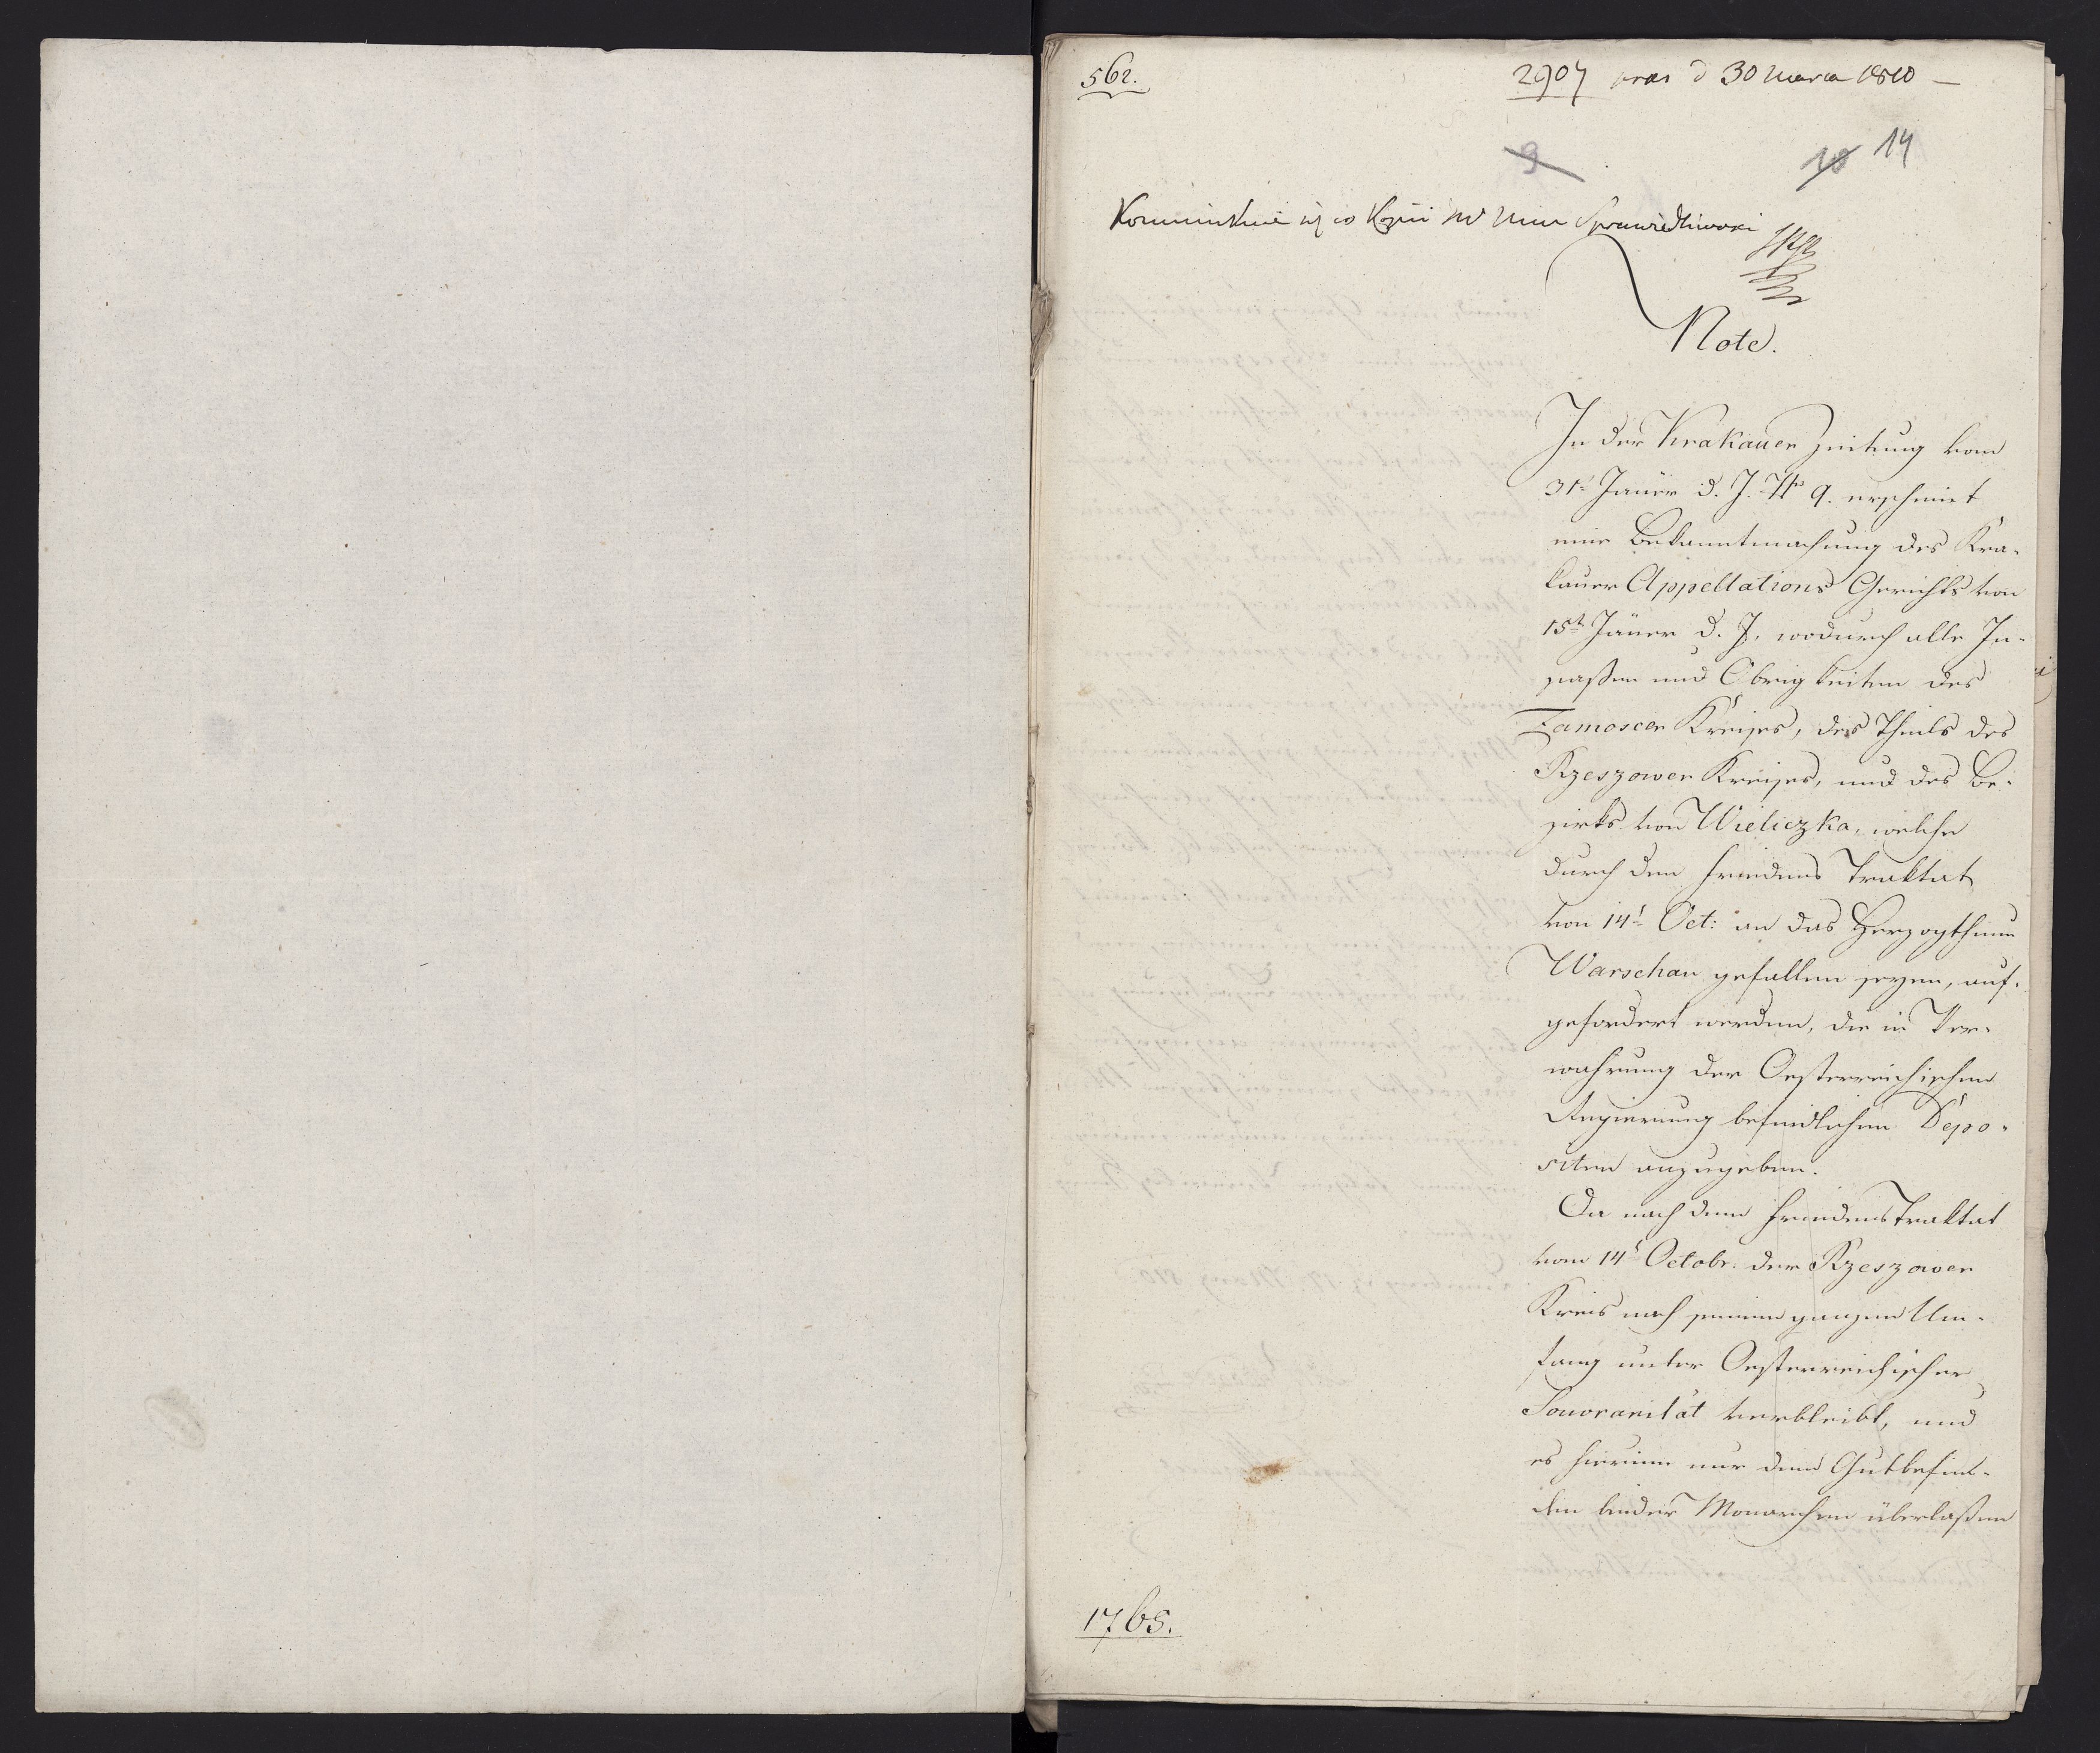 562.
2907 pras d 30 Marca 1810 —
9
18 14
w Kopii Min Sprawiedliwości
Note.
In der Krakauer Zeitung vom
31t Jäner d. J. No 9. erscheint
eine Bekanntmachung des Kra-
kauer Appellations Gerichts von
15t Jäner d. J. wodurch alle In-
saßen und Obrigkeiten des
Zamoscer Kreises, des Theils des
Rzeszower Kreises, und des Be-
zirks von Wieliczka, welche
durch den Friedens Traktat
von 14t Oct: an das Herzogthum
Warschau gefallen seyen, auf-
gefordert werden, die in Ver-
wahrung der Oesterreichischen
Regierung befindlichen Depo-
siten anzugeben.
Da nach dem Friedens Traktat
vom 14t Octobr. der Rzeszower
Kreis nach seinem ganzen Um-
fang unter Oesterreichischer
Souveranität verbleibt, und
es hierinn nur dem Gutbefin-
den beider Monarchen überlaßen
1765.